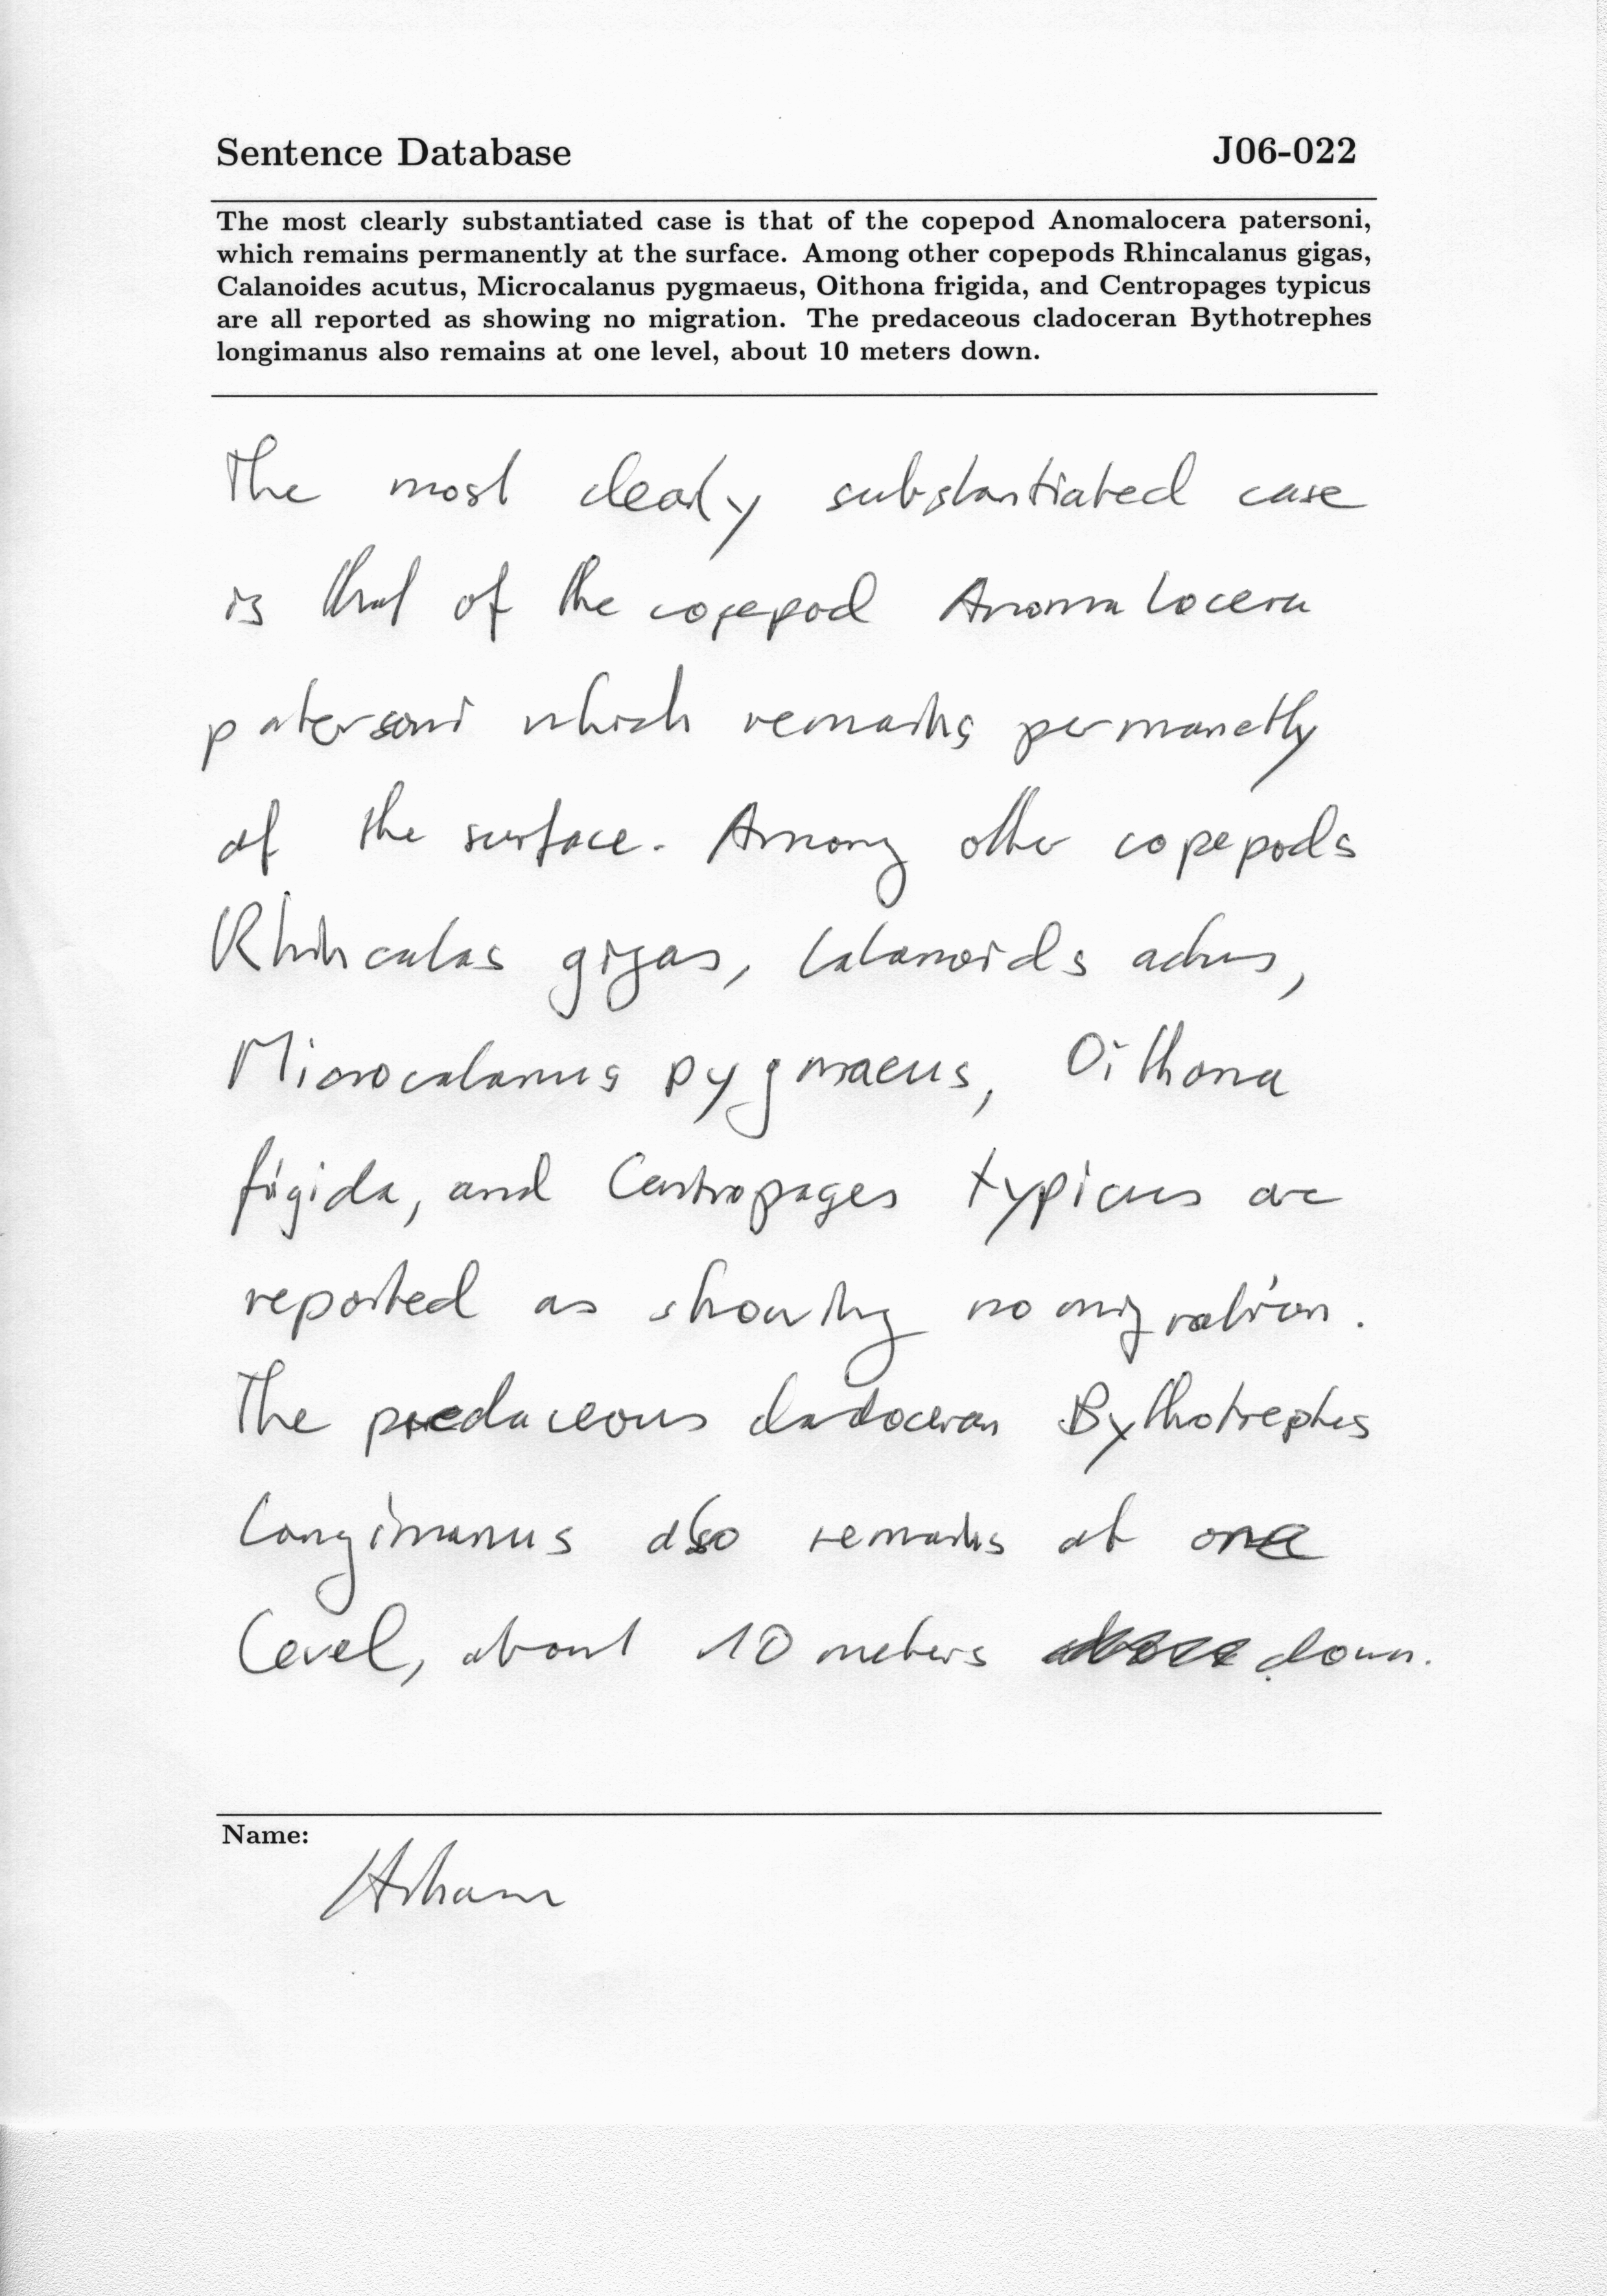 Sentence Database J06-022
The most clearly substantiated case is that of the copepod Anomalocera patersoni,
which remains permanently at the surface. Among other copepods Rhincalanus gigas,
Calanoides acutus, Microcalanus pygmaeus, Oithona frigida, and Centropages typicus
are all reported as showing no migration. The predaceous cladoceran Bythotrephes
longimanus also remains at one level, about 10 meters down.
The most clearly substantiated case
is that of the copepod Anomalocera
patersoni which remains permanetly
at the surface. Among other copepods
Rhincalas gigas, Calanoids acutus,
Microcalanus pygmaeus, Oithona
frigida, and Centropages typicus are
reported as showing no migration.
The predaceous cladoceran Bythotrephes
longimanus also remains at one
level, about 10 meters down.
Name: